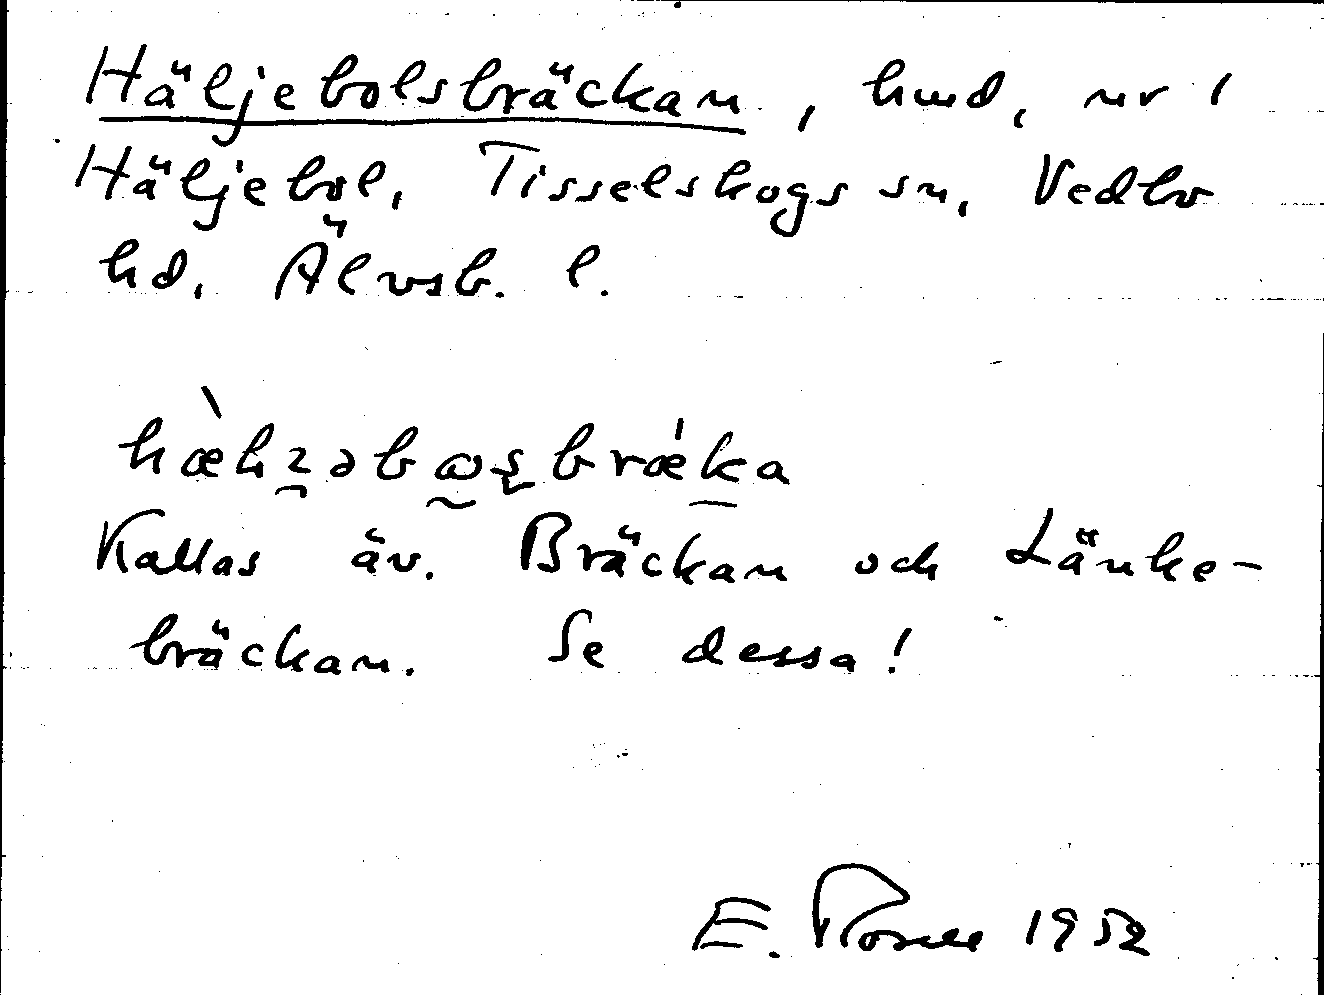 Häljebolsbräckan, hmd, nr 1
Häljebol, Tisselskogs sn, Vedbo
hd, Älvsb. l.
Kallas äv. Bräckan och Länke-
bräckan. Se dessa!
E. 1952